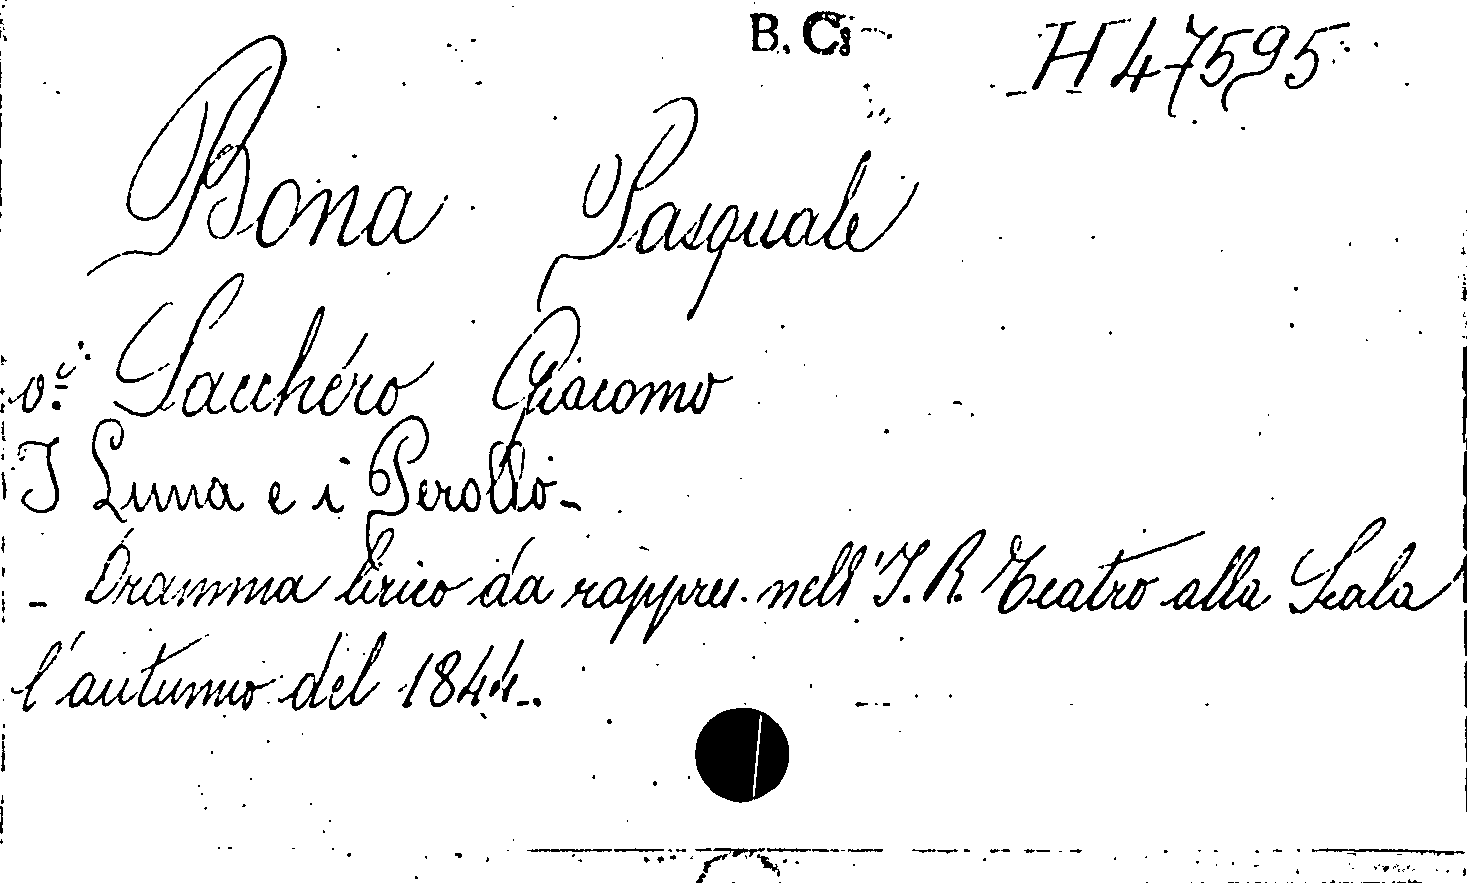 B. C. H 47595
Bona Pasquale
v. Sacchéro Giacomo
I Luna e i Perollo -
- Dramma lirico da rappres. nell'I. R. Teatro alla Scala
l'autunno del 1844.